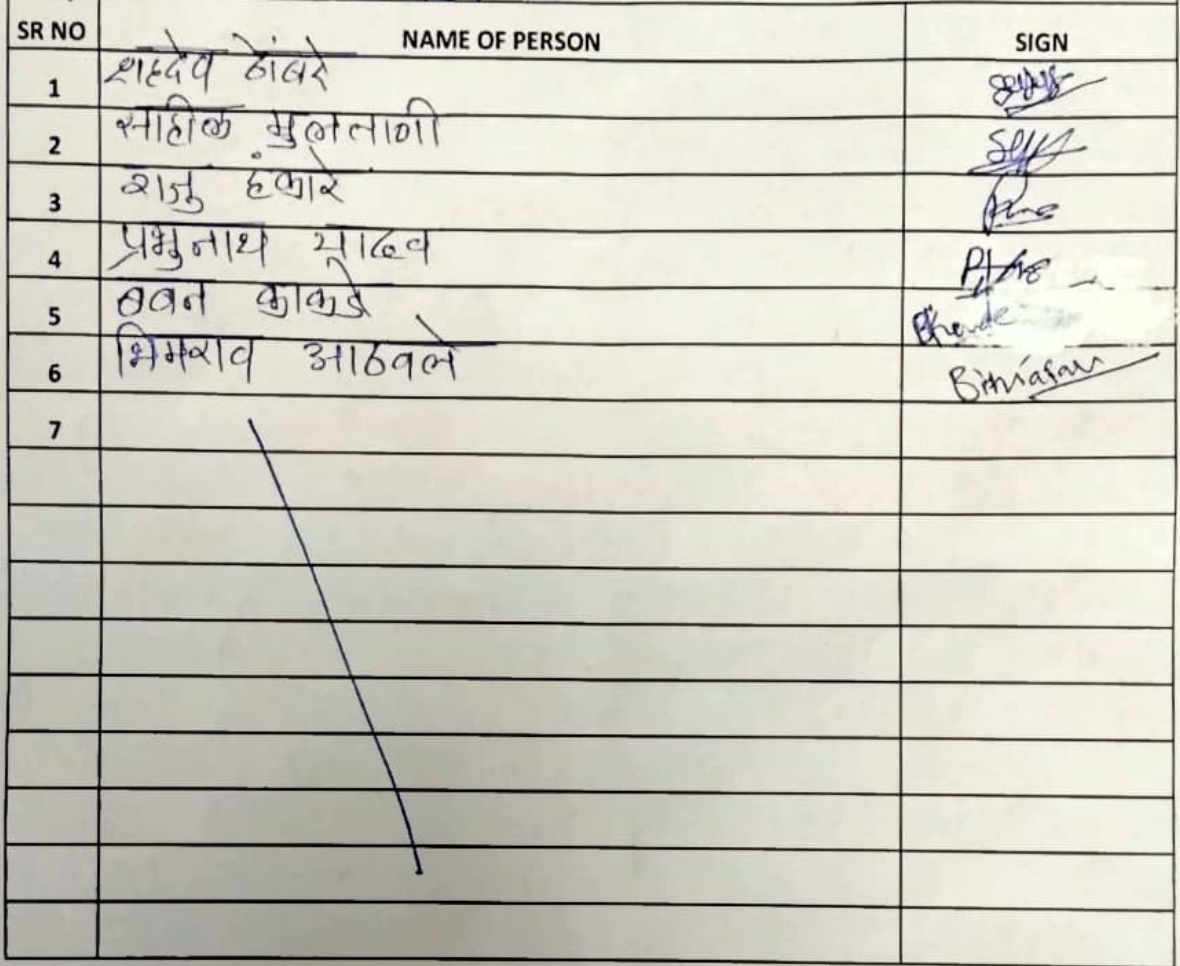 SR NO NAME OF PERSON SIGN
1 शहदेव ठोंबरे
2 साहील मुलतानी
3 राजु हंकारे
4 प्रभुनाथ यादव
5 बबन काकडे
6 भिमराव आठवले
7